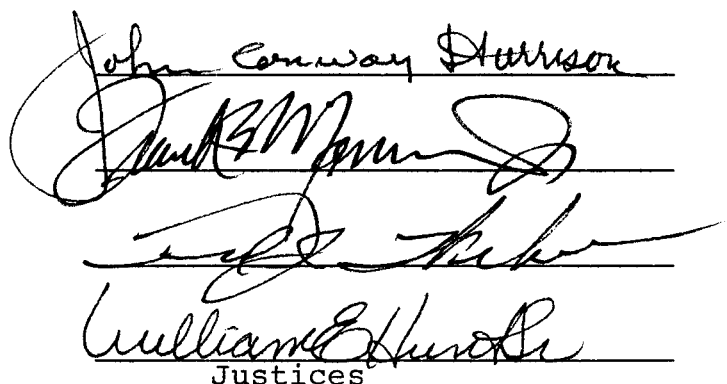 John Conway Harrison
Frank B Morrison Jr
William E Hunt Sr
Justices